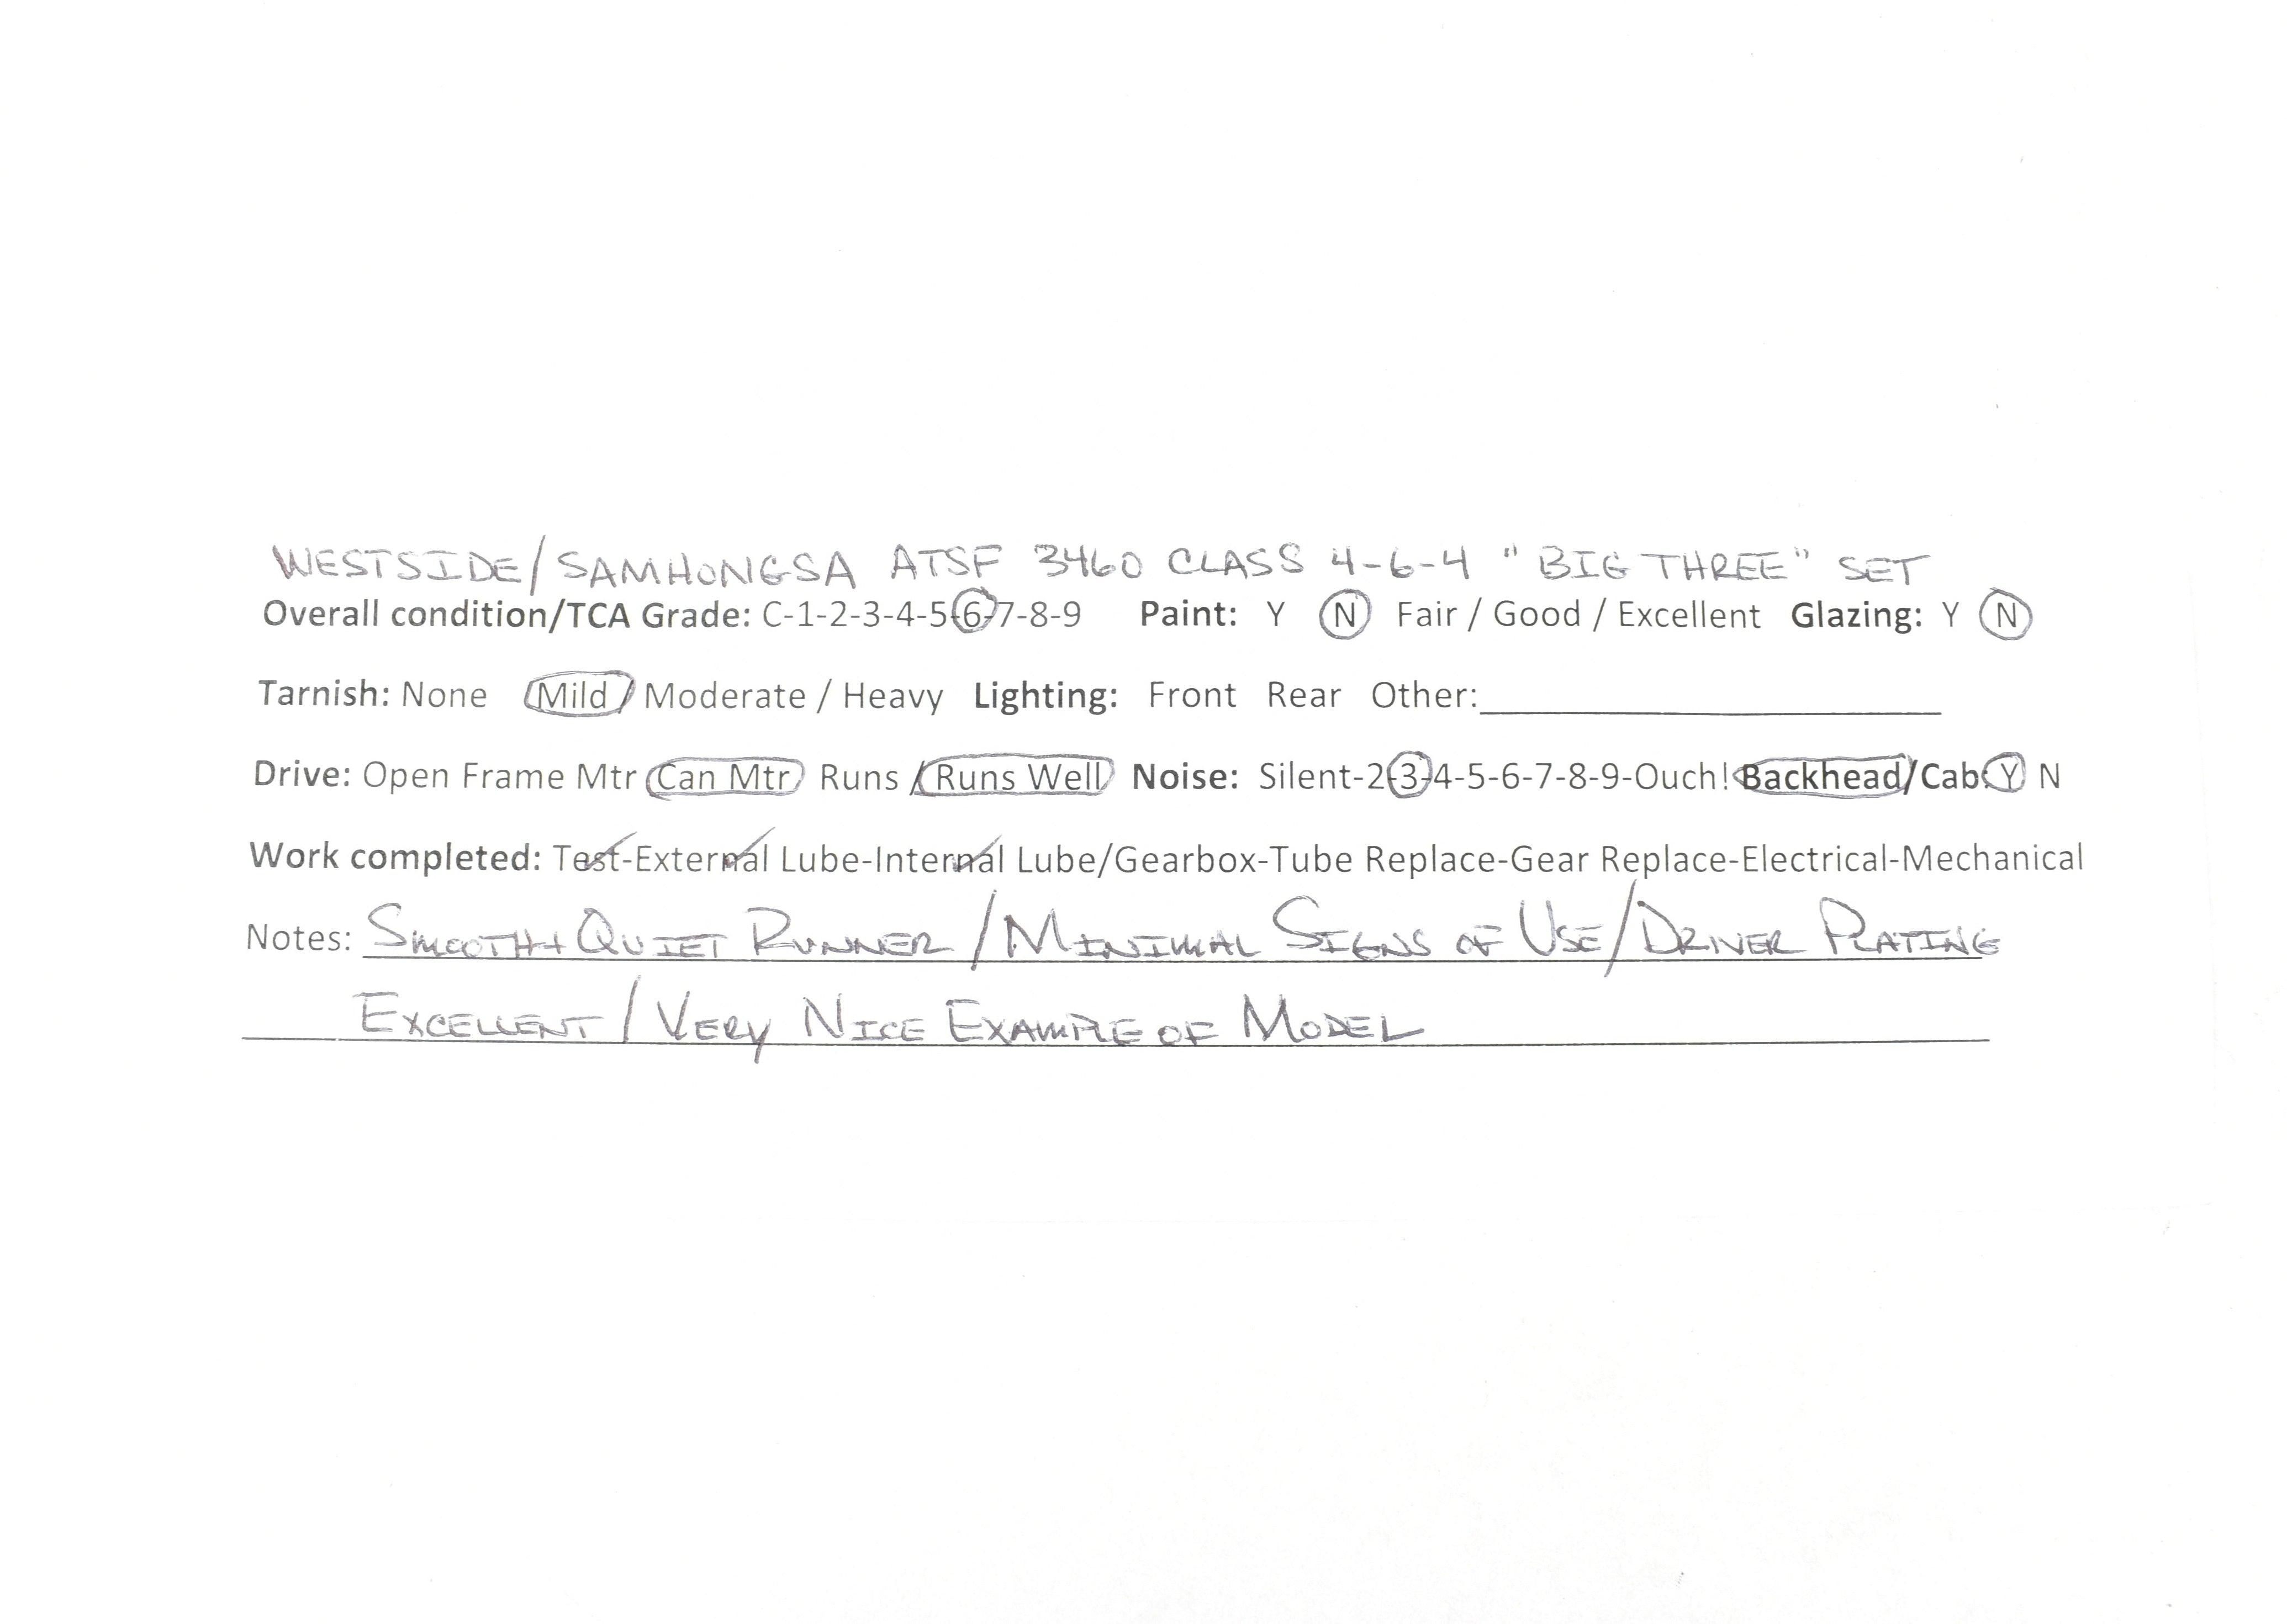 WESTSIDE/SAMHONGSA ATSF 3460 CLASS 4-6-4 "BIG THREE" SET
Overall condition/TCA Grade: C-1-2-3-4-5-6-7-8-9 Paint: Y N Fair / Good / Excellent Glazing: Y N
Tarnish: None Mild / Moderate / Heavy Lighting: Front Rear Other:
Drive: Open Frame Mtr Can Mtr Runs / Runs Well Noise: Silent-2-3-4-5-6-7-8-9-Ouch! Backhead/Cab: Y N
Work completed: Test-External Lube-Internal Lube/Gearbox-Tube Replace-Gear Replace-Electrical-Mechanical
Notes: SMOOTH + QUIET RUNNER / MINIMAL SIGNS OF USE / DRIVER PLATING
EXCELLENT / VERY NICE EXAMPLE OF MODEL